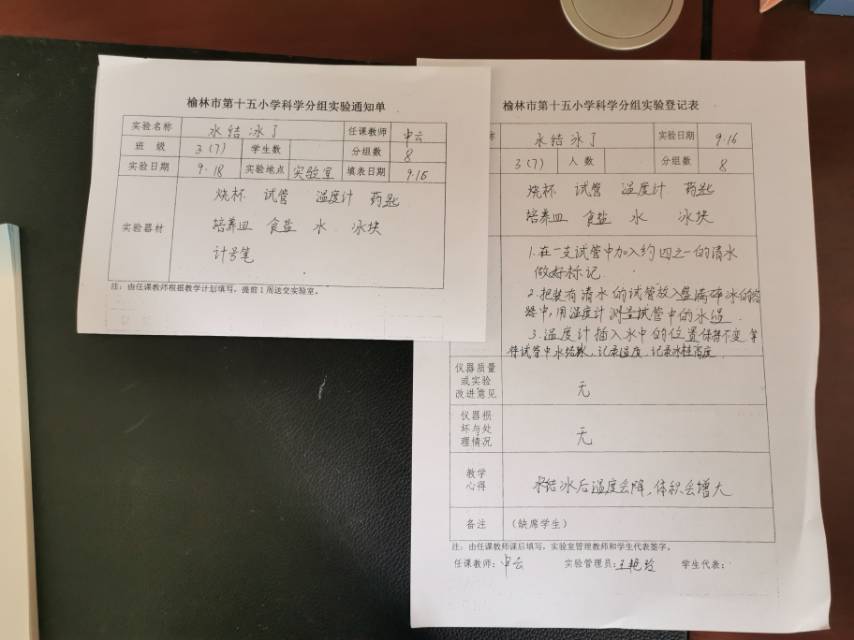 榆林市第十五小学科学分组实验通知单
实验名称 水结冰了 任课教师 申云
班 级 3(7) 学生数 分组数 8
实验日期 9.18 实验地点 实验室 填表日期 9.16
实验器材
烧杯 试管 温度计 药匙
培养皿 食盐 水 冰块
计号笔
注：由任课教师根据教学计划填写，提前1周送交实验室。
榆林市第十五小学科学分组实验登记表
称 水结冰了 实验日期 9.16
3(7) 人 数 分组数 8
烧杯 试管 温度计 药匙
培养皿 食盐 水 冰块
1.在一支试管中加入约四之一的清水
做好标记.
2.把装有清水的试管放入盛满碎冰的容
器中,用温度计测量试管中的水温.
3.温度计插入水中的位置保持不变,等
待试管中水结冰,记录温度,记录水柱高度.
仪器质量
或实验
改进意见
无
仪器损
坏与处
理情况
无
教学
心得
水结冰后温度会降,体积会增大
备注 （缺席学生）
注：由任课教师课后填写，实验室管理教师和学生代表签字。
任课教师：申云 实验管理员：王艳玲 学生代表：